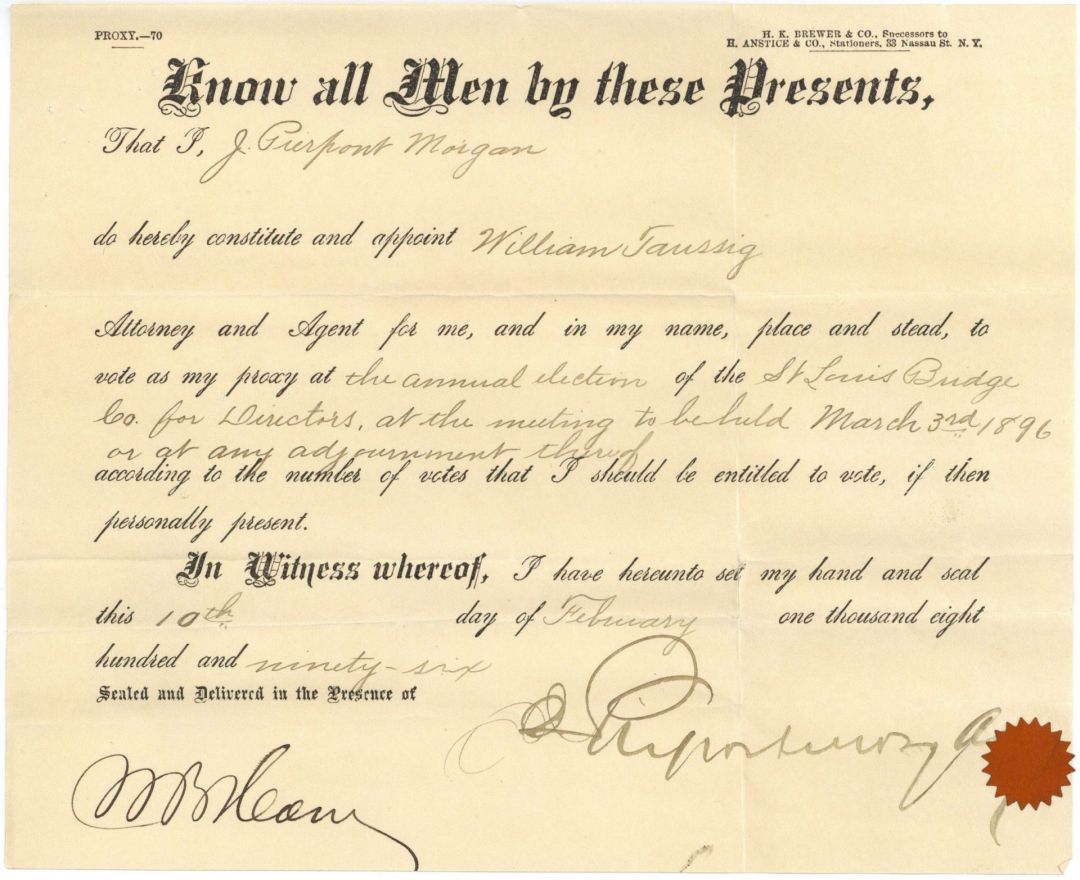 PROXY.—70
H. K. BREWER & CO., Successors to
H. ANSTICE & CO., Stationers, 33 Nassau St. N. Y.
Know all Men by these Presents,
That I, J. Pierpont Morgan
do hereby constitute and appoint William Taussig
Attorney and Agent for me, and in my name, place and stead, to
vote as my proxy at the annual election of the St Louis Bridge
Co. for Directors, at the meeting to be held March 3rd 1896
or at any adjournment thereof
according to the number of votes that I should be entitled to vote, if then
personally present.
In Witness whereof, I have hereunto set my hand and seal
this 10th day of February one thousand eight
hundred and ninety-six
Sealed and Delivered in the Presence of
J Pierpont Morgan